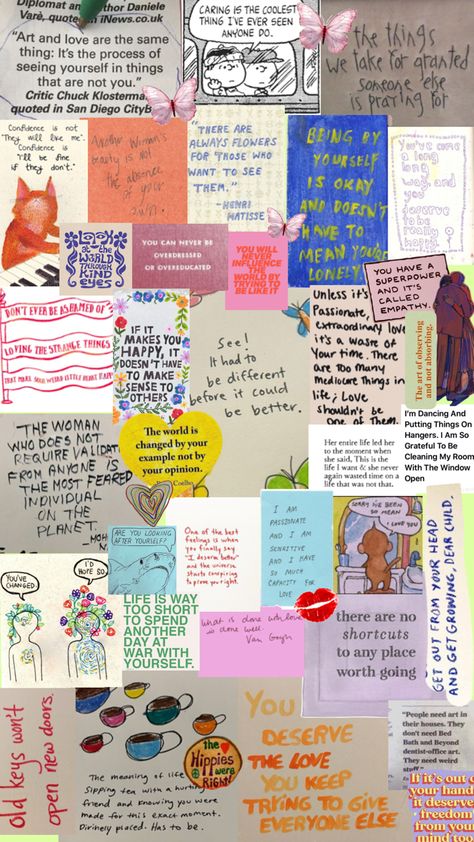 Diplomat and author Daniele
Varè, quoted in iNews.co.uk
"Art and love are the same
thing: It's the process of
seeing yourself in things
that are not you."
Critic Chuck Klosterman,
quoted in San Diego CityB
CARING IS THE COOLEST
THING I'VE EVER SEEN
ANYONE DO.
the things
we take for granted
someone else
is praying for
Confidence is not
"They will like me"
Confidence is
"I'll be fine
if they don't."
Another woman's
beauty is not
the absence
of your
own
"THERE ARE
ALWAYS FLOWERS
FOR THOSE WHO
WANT TO SEE
THEM."
-HENRI
MATISSE
BEING BY
YOURSELF
IS OKAY
AND DOESN'T
HAVE TO
MEAN YOU'RE
LONELY.
you've come
a long
long
way, and
you
deserve
to be
really
happy.
LOOK AT
THE
WORLD
THROUGH
KIND
EYES
YOU CAN NEVER BE
OVERDRESSED
OR OVEREDUCATED
YOU WILL
NEVER
INFLUENCE
THE WORLD BY
TRYING TO
BE LIKE IT
YOU HAVE A
SUPERPOWER
AND IT'S
CALLED
EMPATHY.
DON'T EVER BE ASHAMED OF
LOVING THE STRANGE THINGS
THAT MAKE YOUR WEIRD LITTLE HEART HAPPY
IF IT
MAKES YOU
HAPPY, IT
DOESN'T HAVE
TO MAKE
SENSE TO
OTHERS
See!
It had to
be different
before it could
be better.
Unless it's
Passionate,
Extraordinary love
it's a waste of
Your time. There
are too many
Mediocre things in
life; Love
Shouldn't be
One of Them.
The art of observing
and not absorbing.
I'm Dancing And
Putting Things On
Hangers. I Am So
Grateful To Be
Cleaning My Room
With The Window
Open
"THE WOMAN
WHO DOES NOT
REQUIRE VALIDAT
FROM ANYONE IS
THE MOST FEARED
INDIVIDUAL
ON THE
PLANET."
The world is
changed by your
example not by
your opinion.
Coelho
Her entire life led her
to the moment when
she said, This is the
life I want & she never
again wasted time on a
life that was not that.
ARE YOU LOOKING
AFTER YOURSELF?
One of the best
feelings is when
you finally say
"I deserve better"
and the universe
starts conspiring
to prove you right.
I AM
PASSIONATE
AND I AM
SENSITIVE
AND I HAVE
SO MUCH
CAPACITY FOR
LOVE
SORRY I'VE BEEN
SO MEAN
I LOVE YOU
GET OUT FROM YOUR HEAD
AND GET GROWING, DEAR CHILD.
YOU'VE
CHANGED
I'D
HOPE SO
LIFE IS WAY
TOO SHORT
TO SPEND
ANOTHER
DAY AT
WAR WITH
YOURSELF.
What is done with love
is done well.
Van Gogh
there are no
shortcuts
to any place
worth going
old keys won't
open new doors.
The
Hippies
were
Right!
The meaning of life is
sipping tea with a
friend and knowing you were
made for this exact moment.
Divinely placed. Has to be.
YOU
DESERVE
THE LOVE
YOU KEEP
TRYING TO GIVE
EVERYONE ELSE
"People need art in
their houses. They
don't need Bed
Bath and Beyond
dentist-office art.
They need weird
stuff."
If it's out of
your hands
it deserves
freedom
from your
mind too